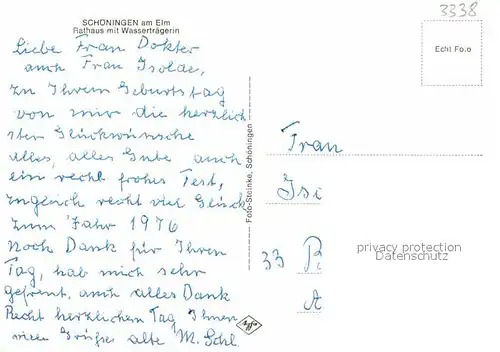 3338
SCHÖNINGEN am Elm
Rathaus mit Wasserträgerin
Echt Foto
Liebe Frau Dokter
auch Frau Isolde,
zu Ihrem Geburtstag
von mir die herzlich
sten Glückwünsche
alles, alles Gute auch
ein recht frohes Fest,
zugleich recht viel Glück
zum Jahr 1976
Noch Dank für Ihren
Tag, hab mich sehr
gefreut, auch alles Dank
Recht herzlichen Tag Ihnen
viele Grüße alte M. Schl.
Foto-Steinke, Schöningen
Frau
Isi
33
A
privacy protection
Datenschutz
Agfa